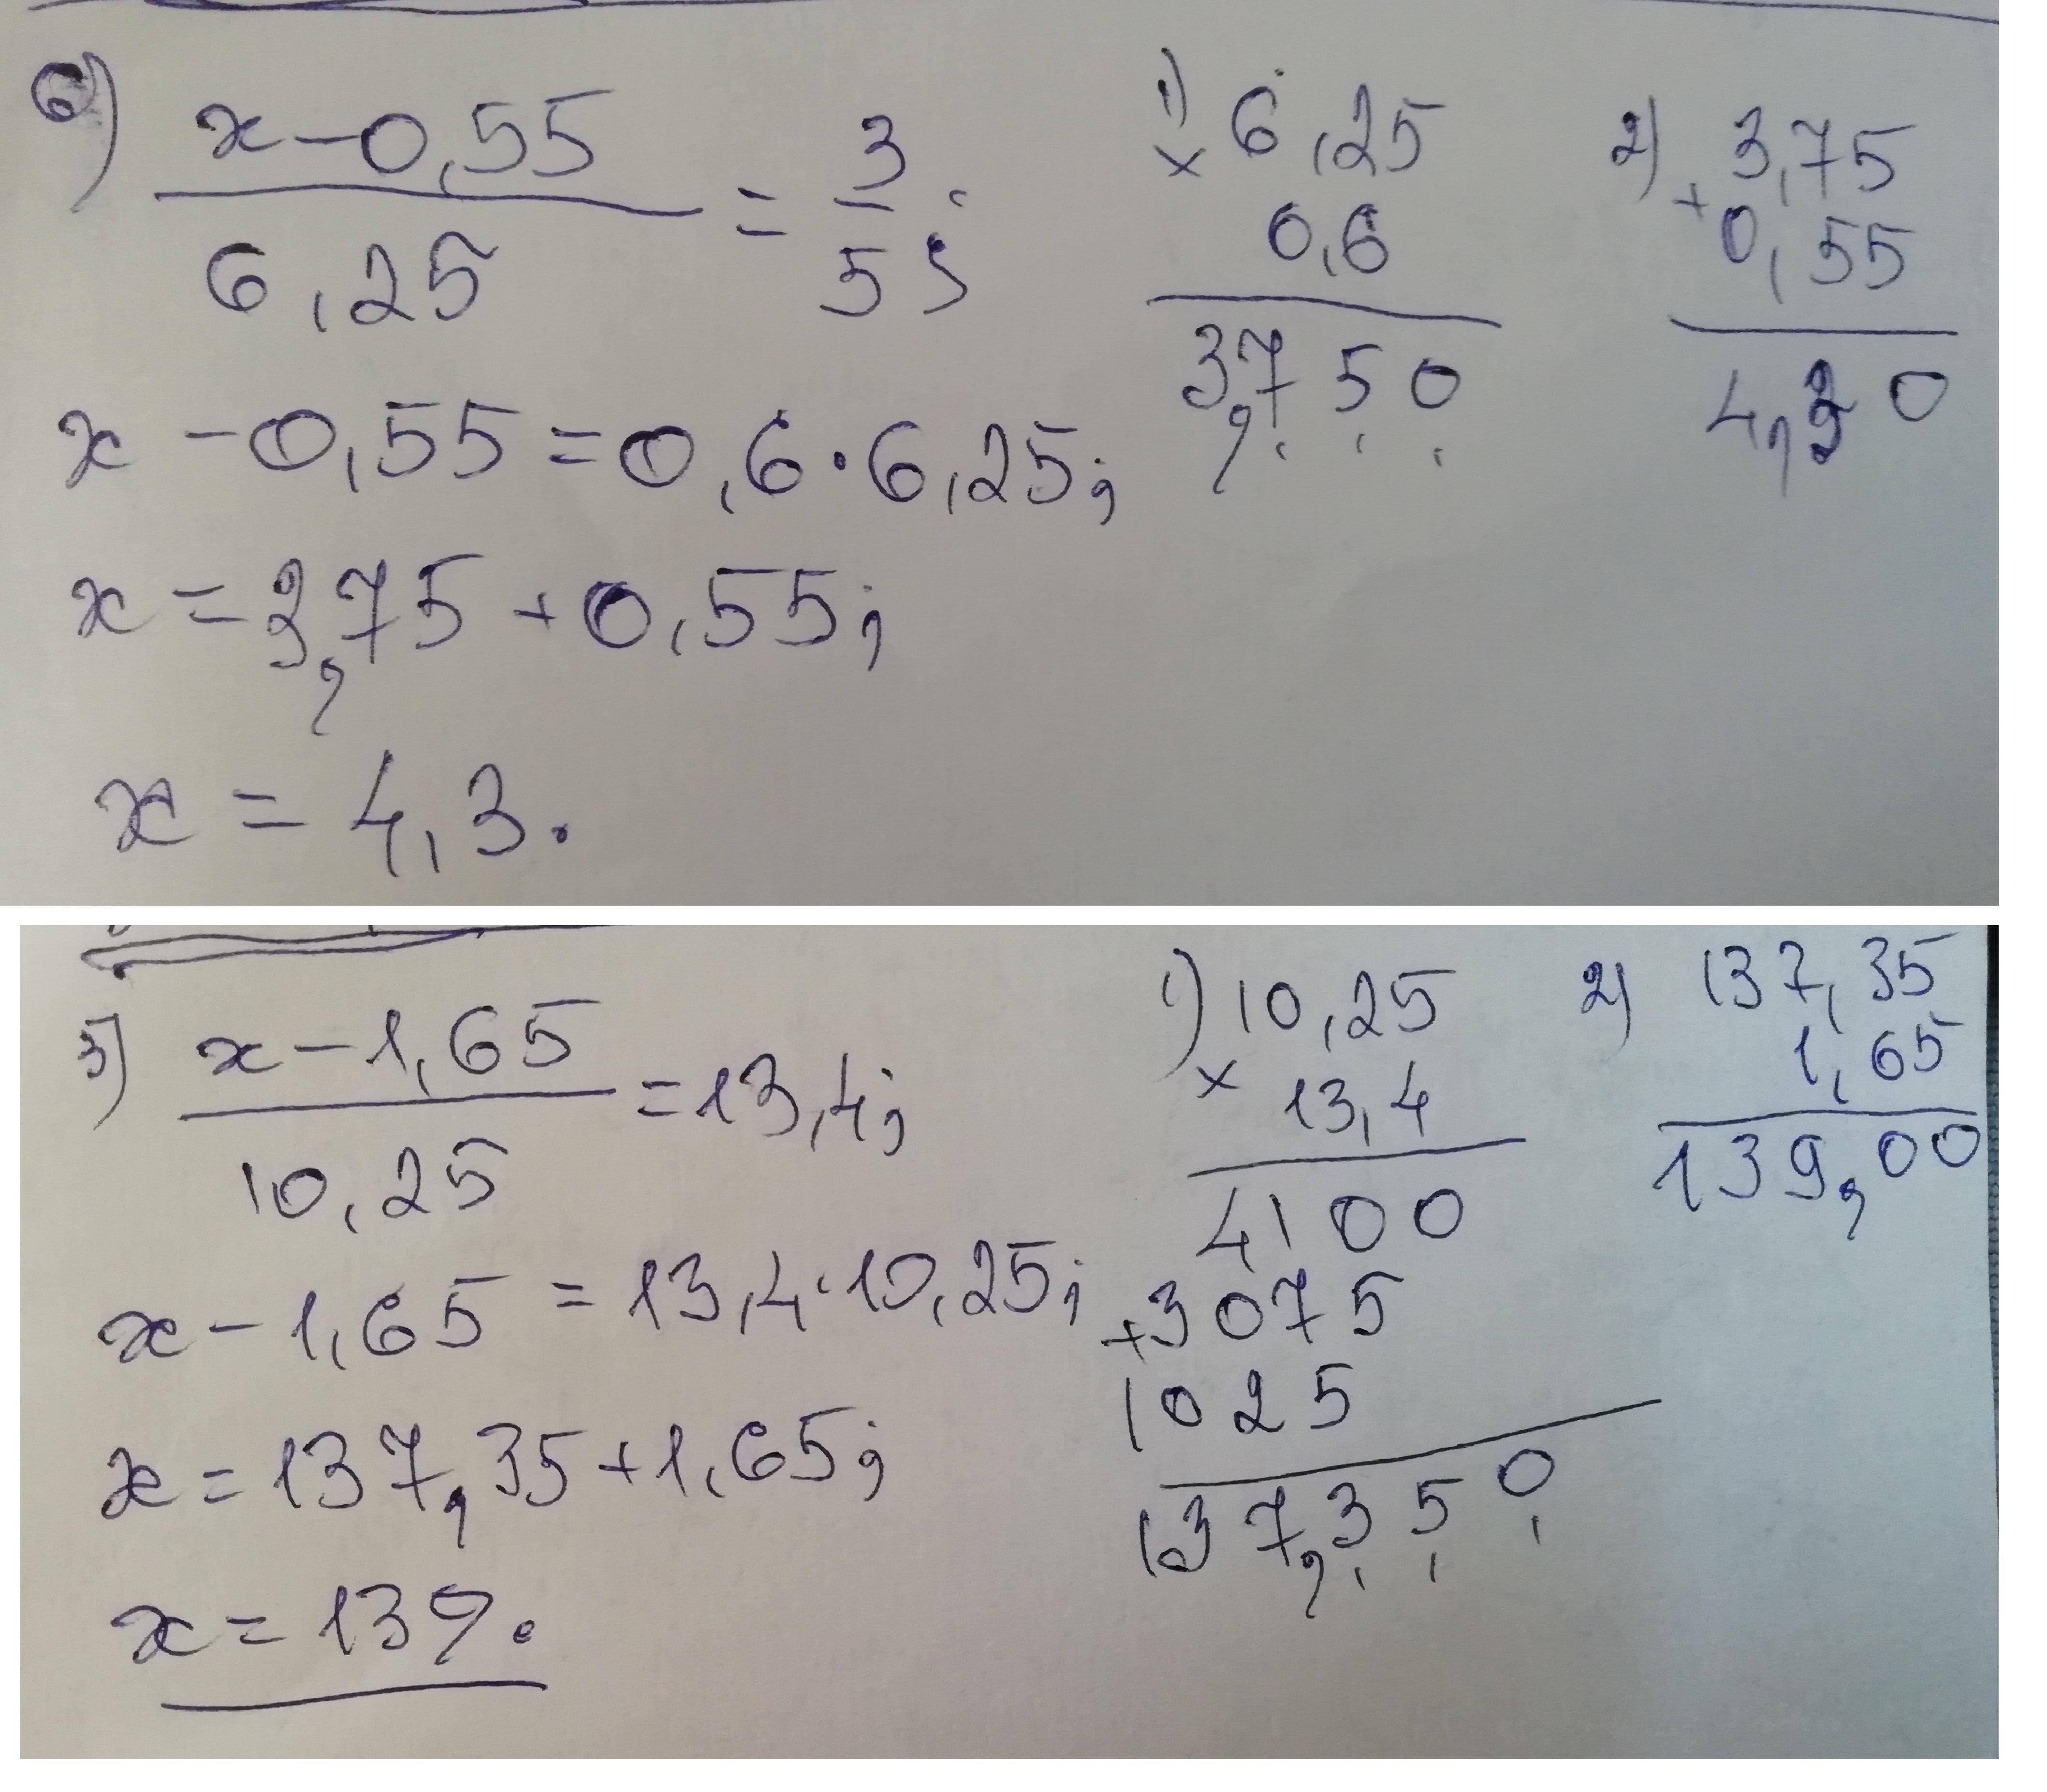 6) x-0,55 / 6,25 = 3/5;
x-0,55=0,6·6,25;
x=3,75+0,55;
x=4,3.
1) 6,25
× 0,6
3,750
2) 3,75
+ 0,55
4,30
5) x-1,65 / 10,25 =13,4;
x-1,65=13,4·10,25;
x=137,35+1,65;
x=139.
1) 10,25
× 13,4
4100
+3075
1025
137,350
2) 137,35
1,65
139,00